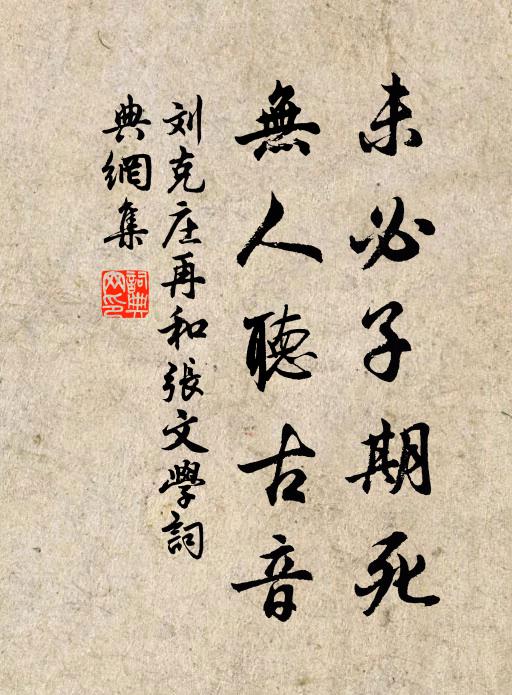 未必子期死
無人聽古音
刘克庄再和張文學詞
典網集
詞典网印